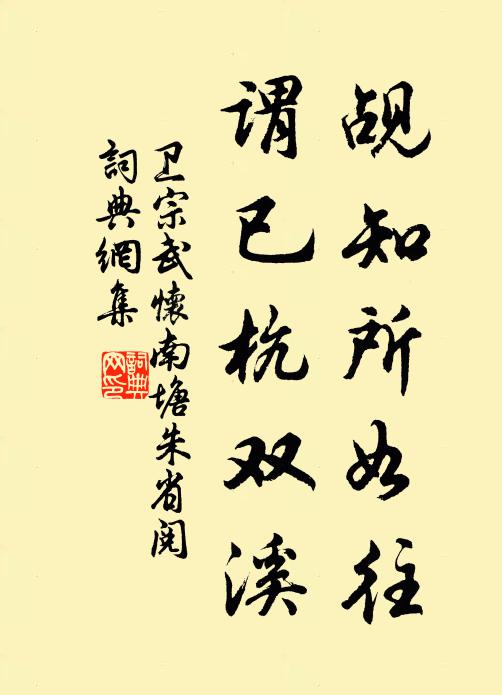 觇知所如往
谓已杭双溪
卫宗武懷南塘朱省阅
詞典網集
詞典网印